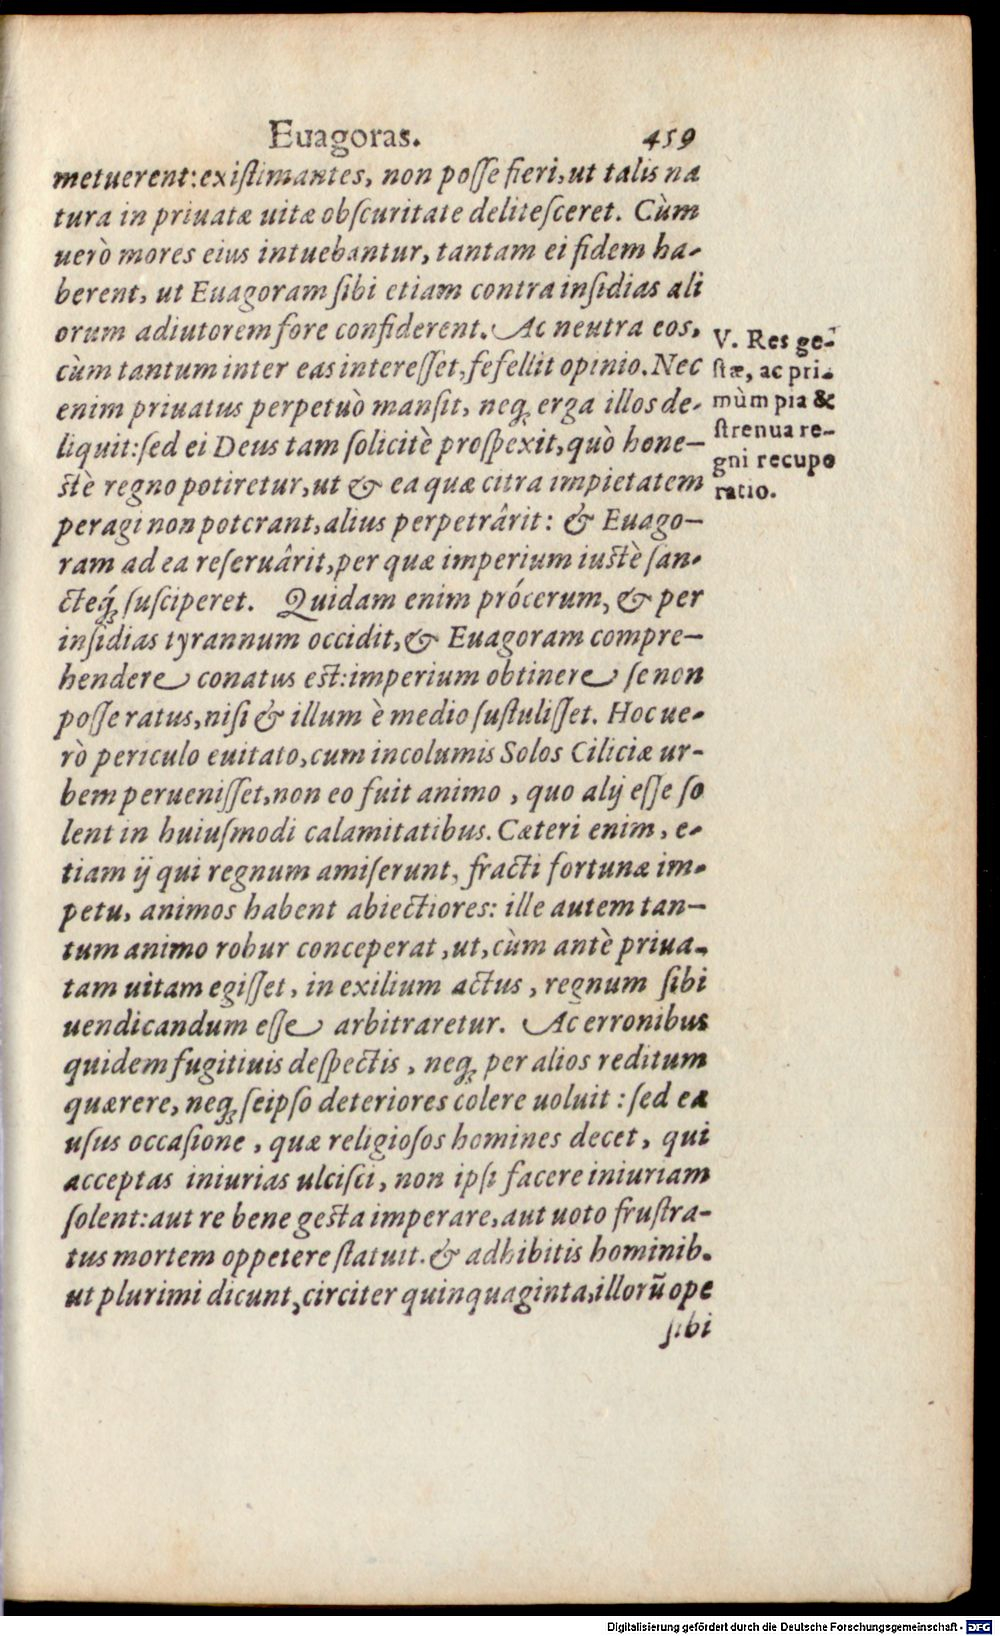 Euagoras. 459
metuerent: existimantes, non posse fieri, ut talis na
tura in priuatæ uitæ obscuritate delitesceret. Cùm
uerò mores eius intuebantur, tantam ei fidem ha-
berent, ut Euagoram sibi etiam contra insidias ali
orum adiutorem fore confiderent. Ac neutra eos,
cùm tantum inter eas interesset, fefellit opinio. Nec
enim priuatus perpetuò mansit, neq; erga illos de-
liquit: sed ei Deus tam solicitè prospexit, quò hone-
stè regno potiretur, ut & ea quæ citra impietatem
peragi non poterant, alius perpetrârit: & Euago-
ram ad ea reseruârit, per quæ imperium iustè san-
cteq́; susciperet. Quidam enim prócerum, & per
insidias tyrannum occidit, & Euagoram compre-
hendere conatus est: imperium obtinere se non
posse ratus, nisi & illum è medio sustulisset. Hoc ue-
rò periculo euitato, cum incolumis Solos Ciliciæ ur-
bem peruenisset, non eo fuit animo, quo alij esse so
lent in huiusmodi calamitatibus. Cæteri enim, e-
tiam ij qui regnum amiserunt, fracti fortunæ im-
petu, animos habent abiectiores: ille autem tan-
tum animo robur conceperat, ut, cùm antè priua-
tam uitam egisset, in exilium actus, regnum sibi
uendicandum esse arbitraretur. Ac erronibus
quidem fugitiuis despectis, neq; per alios reditum
quærere, neq; seipso deteriores colere uoluit: sed ea
usus occasione, quæ religiosos homines decet, qui
acceptas iniurias ulcisci, non ipsi facere iniuriam
solent: aut re bene gesta imperare, aut uoto frustra-
tus mortem oppetere statuit. & adhibitis hominib.
ut plurimi dicunt, circiter quinquaginta, illorū ope
sibi
V. Res ge-
stæ, ac pri-
mùm pia &
strenua re-
gni recupe
ratio.
Digitalisierung gefördert durch die Deutsche Forschungsgemeinschaft - DFG